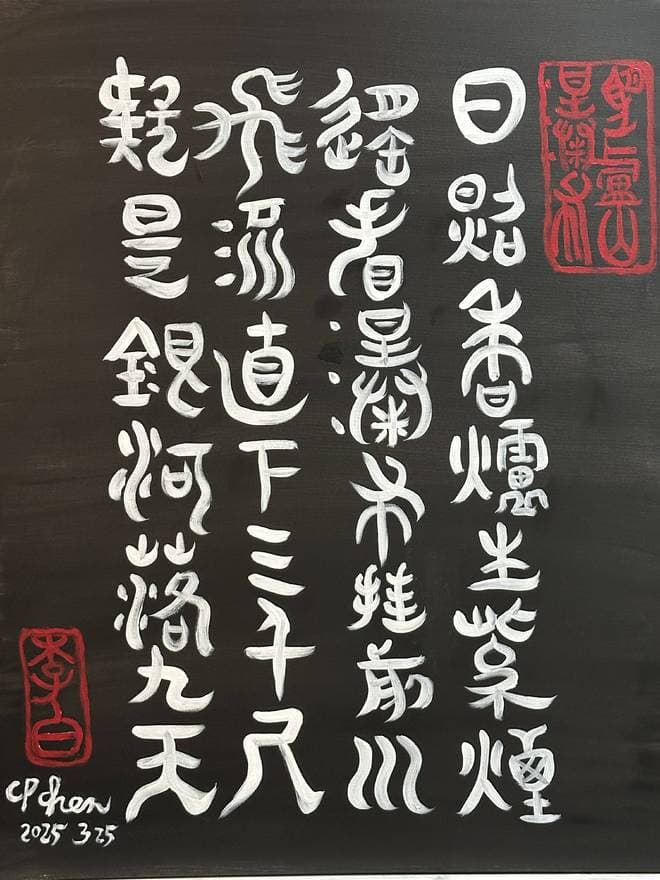 望廬山
瀑布
日照香爐生紫煙
遙看瀑布挂前川
飛流直下三千尺
疑是銀河落九天
李白
CP chen
2025 3 25